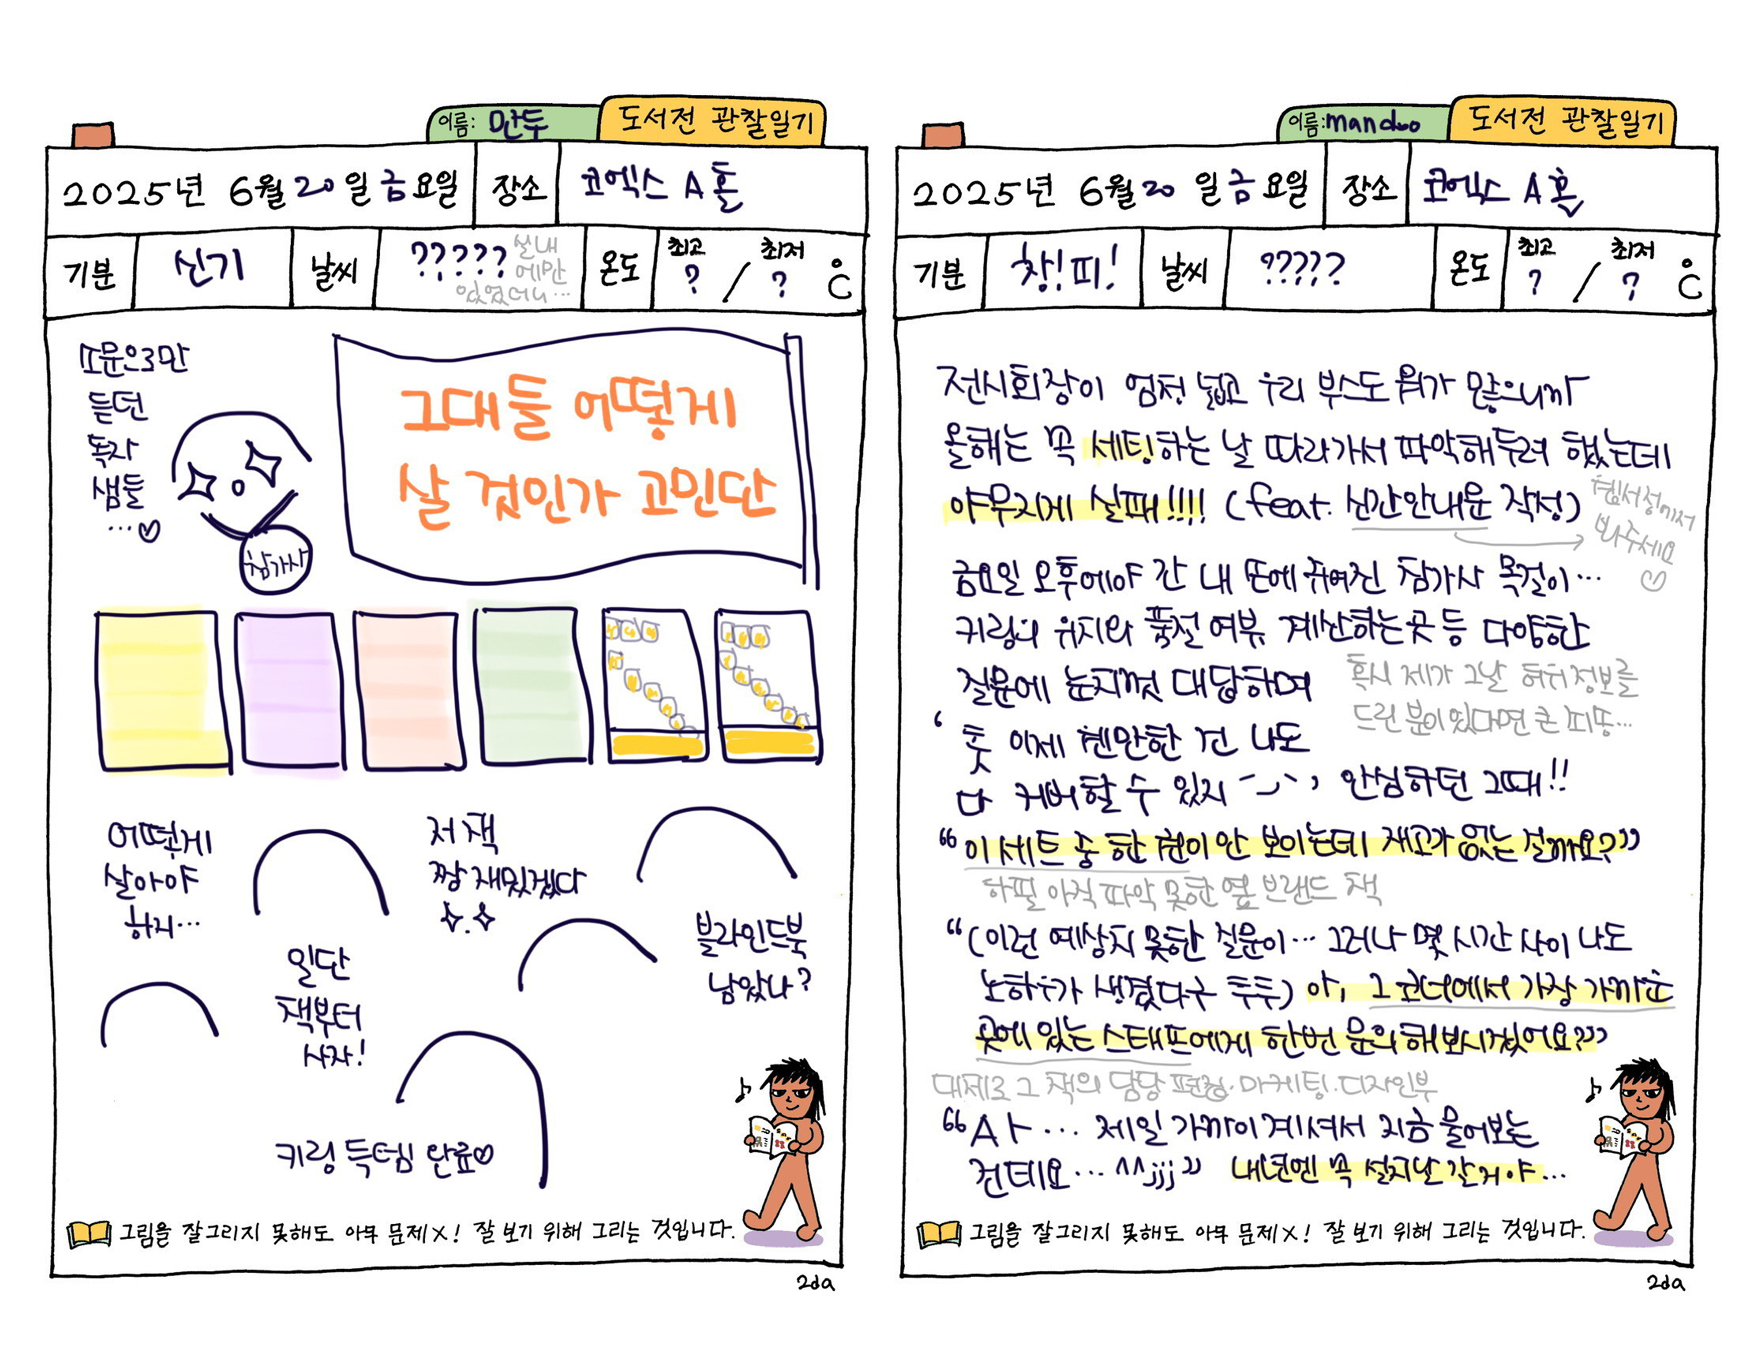 이름: 만두
도서전 관찰일기
2025년 6월 20일 금요일 장소 코엑스 A홀
기분 신기 날씨 ????? 실내
에만
있었더니...
온도 최고 ? / 최저 ? ℃
띠문으3만
듣던
독자
샘들
...♡
참가사
그대들 어떻게
살 것인가 고민단
어떻게
살아야
하지...
저 책
짱 재밌겠다
블라인드북
남았나?
일단
책부터
사자!
키링 득템 완료♡
그림을 잘그리지 못해도 아무 문제X! 잘 보기 위해 그리는 것입니다.
2da
이름: manduo
도서전 관찰일기
2025년 6월 20일 금요일 장소 코엑스 A홀
기분 창!피! 날씨 ?????
온도 최고 ? / 최저 ? ℃
전시회장이 엄청 넓고 우리 부스도 뭐가 많으니까
올해는 꼭 세팅하는 날 따라가서 파악해두려 했는데
야무지게 실패!!!! (feat. 신간안내문 작성)
봐주세요
♡
금요일 오후에야 간 내 손에 쥐여진 참가사 목걸이...
키링의 위치와 품절 여부, 계산하는 곳 등 다양한
질문에 눈치껏 대답하며
혹시 제가 그날 허위정보를
드린 분이 있다면 큰 피땀...
' 훗 이제 웬만한 건 나도
다 커버할 수 있지 ' 안심하던 그때!!
“이 세트 중 한 권이 안 보이는데 재고가 없는 걸까요?”
하필 아직 파악 못한 옆 브랜드 책
“(이런 예상치 못한 질문이... 그러나 몇 시간 사이 나도
노하우가 생겼다구 후후) 아, 그 코너에서 가장 가까운
곳에 있는 스태프에게 한번 문의해보시겠어요?”
대체로 그 책의 담당 편집·마케팅·디자인부
“아... 제일 가까이 계셔서 지금 물어보는
건데요...^^;;;” 내년엔 꼭 설치날 갈거야...
그림을 잘그리지 못해도 아무 문제X! 잘 보기 위해 그리는 것입니다.
2da